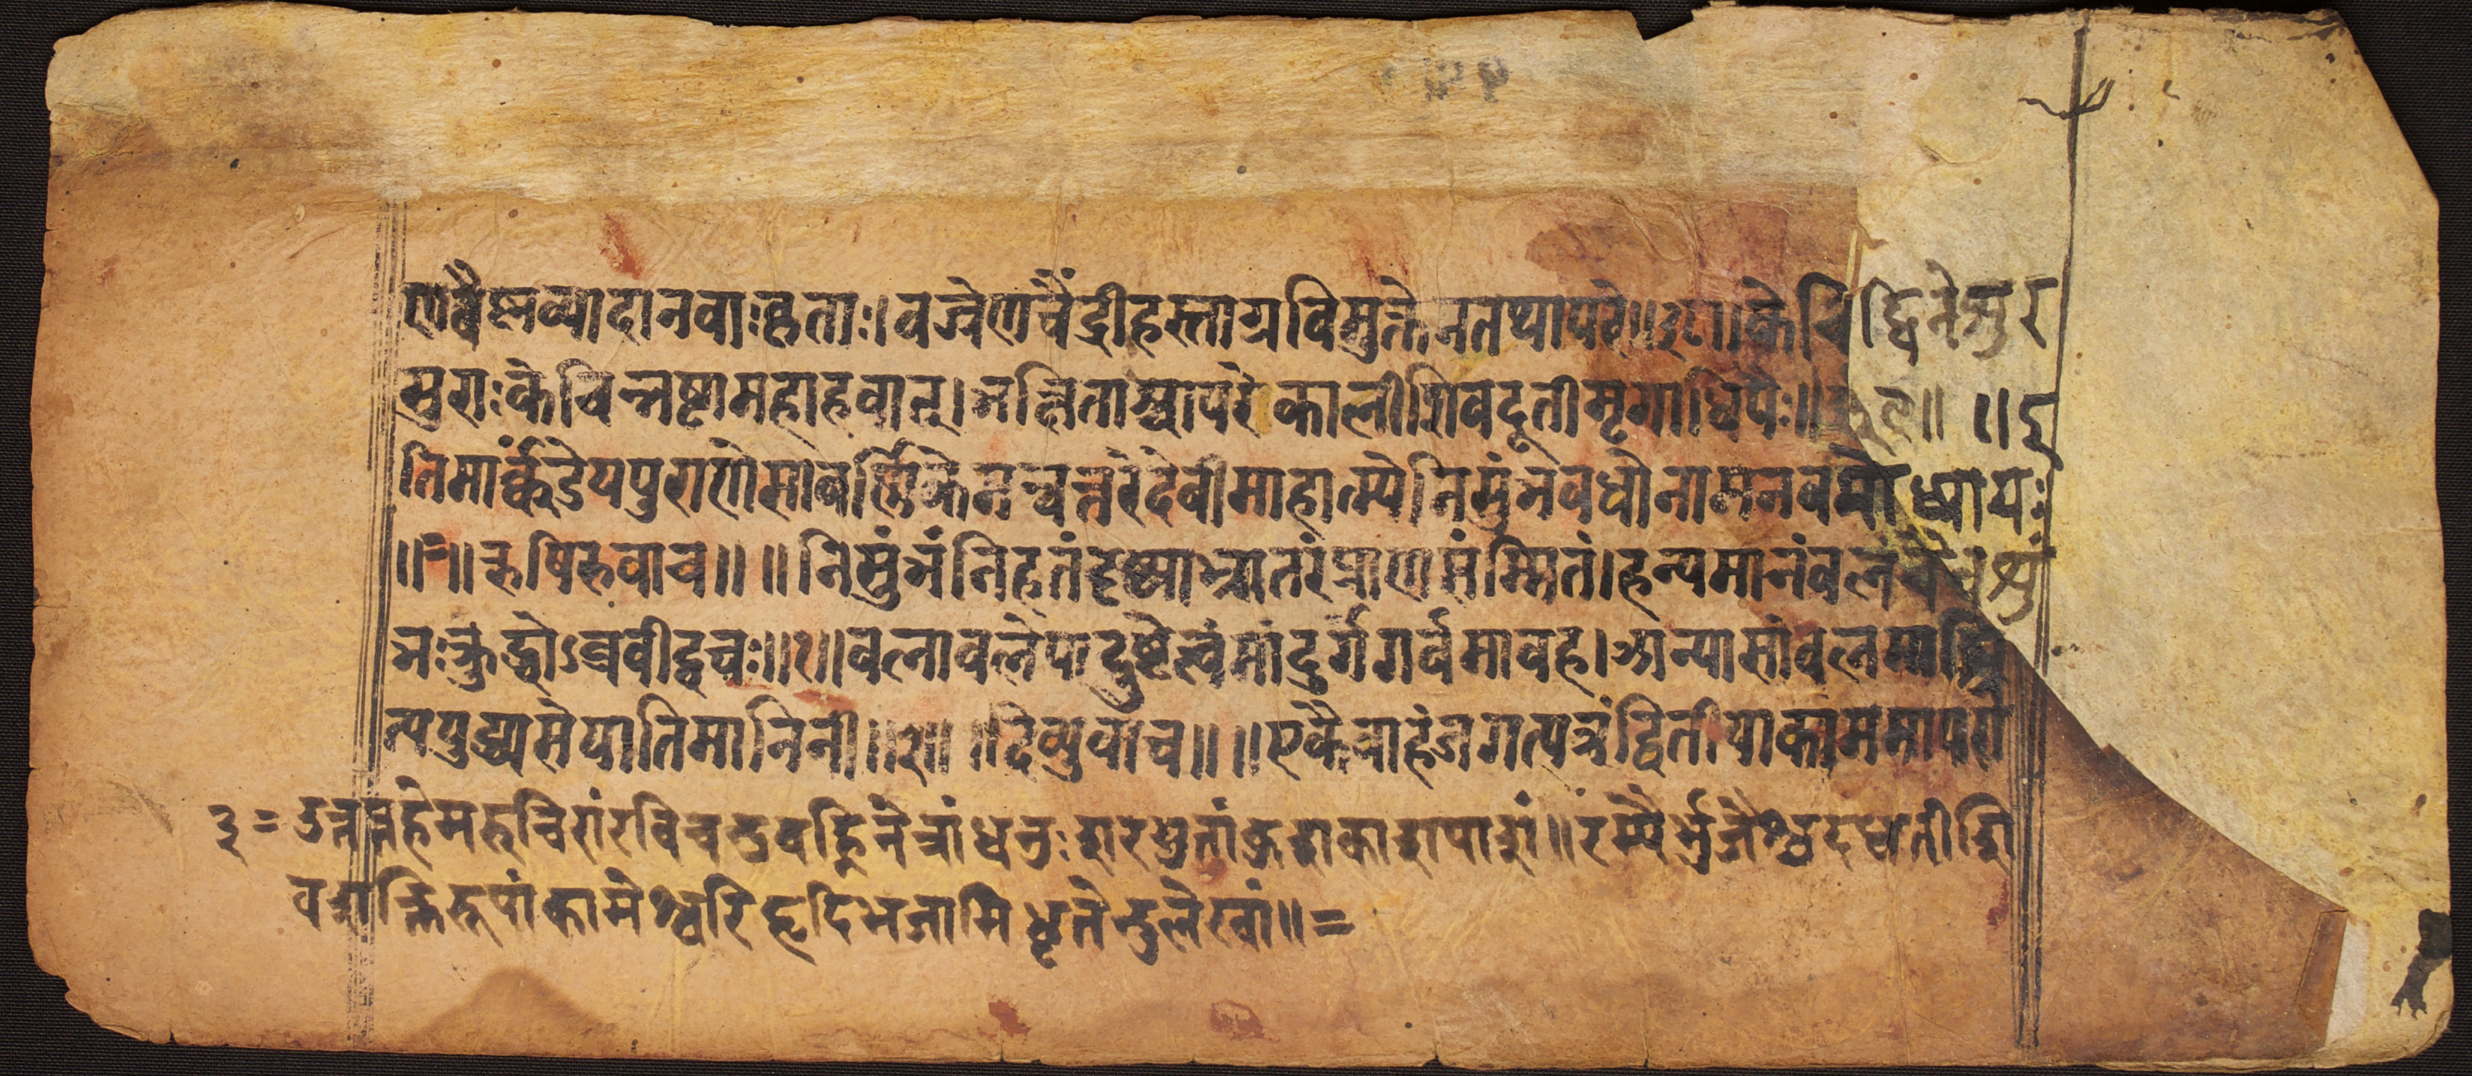 ण वैष्णव्या दानवाः कृताः। वज्रेण चैंद्रीहस्ताग्रविमुक्तेन तथापरे॥३८॥ केचिद्विनेसुर
सुराः केचिन्नष्टा महाहवात्। भक्षिताश्चापरे कालीशिवदूतीमृगाधिपैः॥३९॥ ॥इ
ति मार्क्कंडेयपुराणे सावर्ण्णिके मन्वन्तरे देवीमाहात्म्ये निसुंभवधो नाम नवमोध्यायः
॥=॥ ऋषिरुवाच॥ ॥ निसुंभं निहतं दृष्ट्वा भ्रातरं प्राणसंम्मितं। हन्यमानं बलं चैव शुं
भः क्रुद्धोऽब्रवीद्वचः॥१॥ वलावलेपाद्दुष्टे त्वं मां दुर्गे गर्वमावह। अन्यासां वलमाश्रि
त्य युद्ध्यसे यातिमानिनी॥२॥ ॥देव्युवाच॥ ॥ एकैवाहं जगत्यत्र द्वितीया का ममापरा
३= उत्तप्तहेमरुचिरां रविचन्द्रवह्निनेत्रां धनुःशरयुतांकुशकाशपाशां॥ रम्यैर्भुजैश्च दधतीं शि
वशक्तिरूपां कामेश्वरि हृदि भजामि धृतेन्दुलेखां॥=